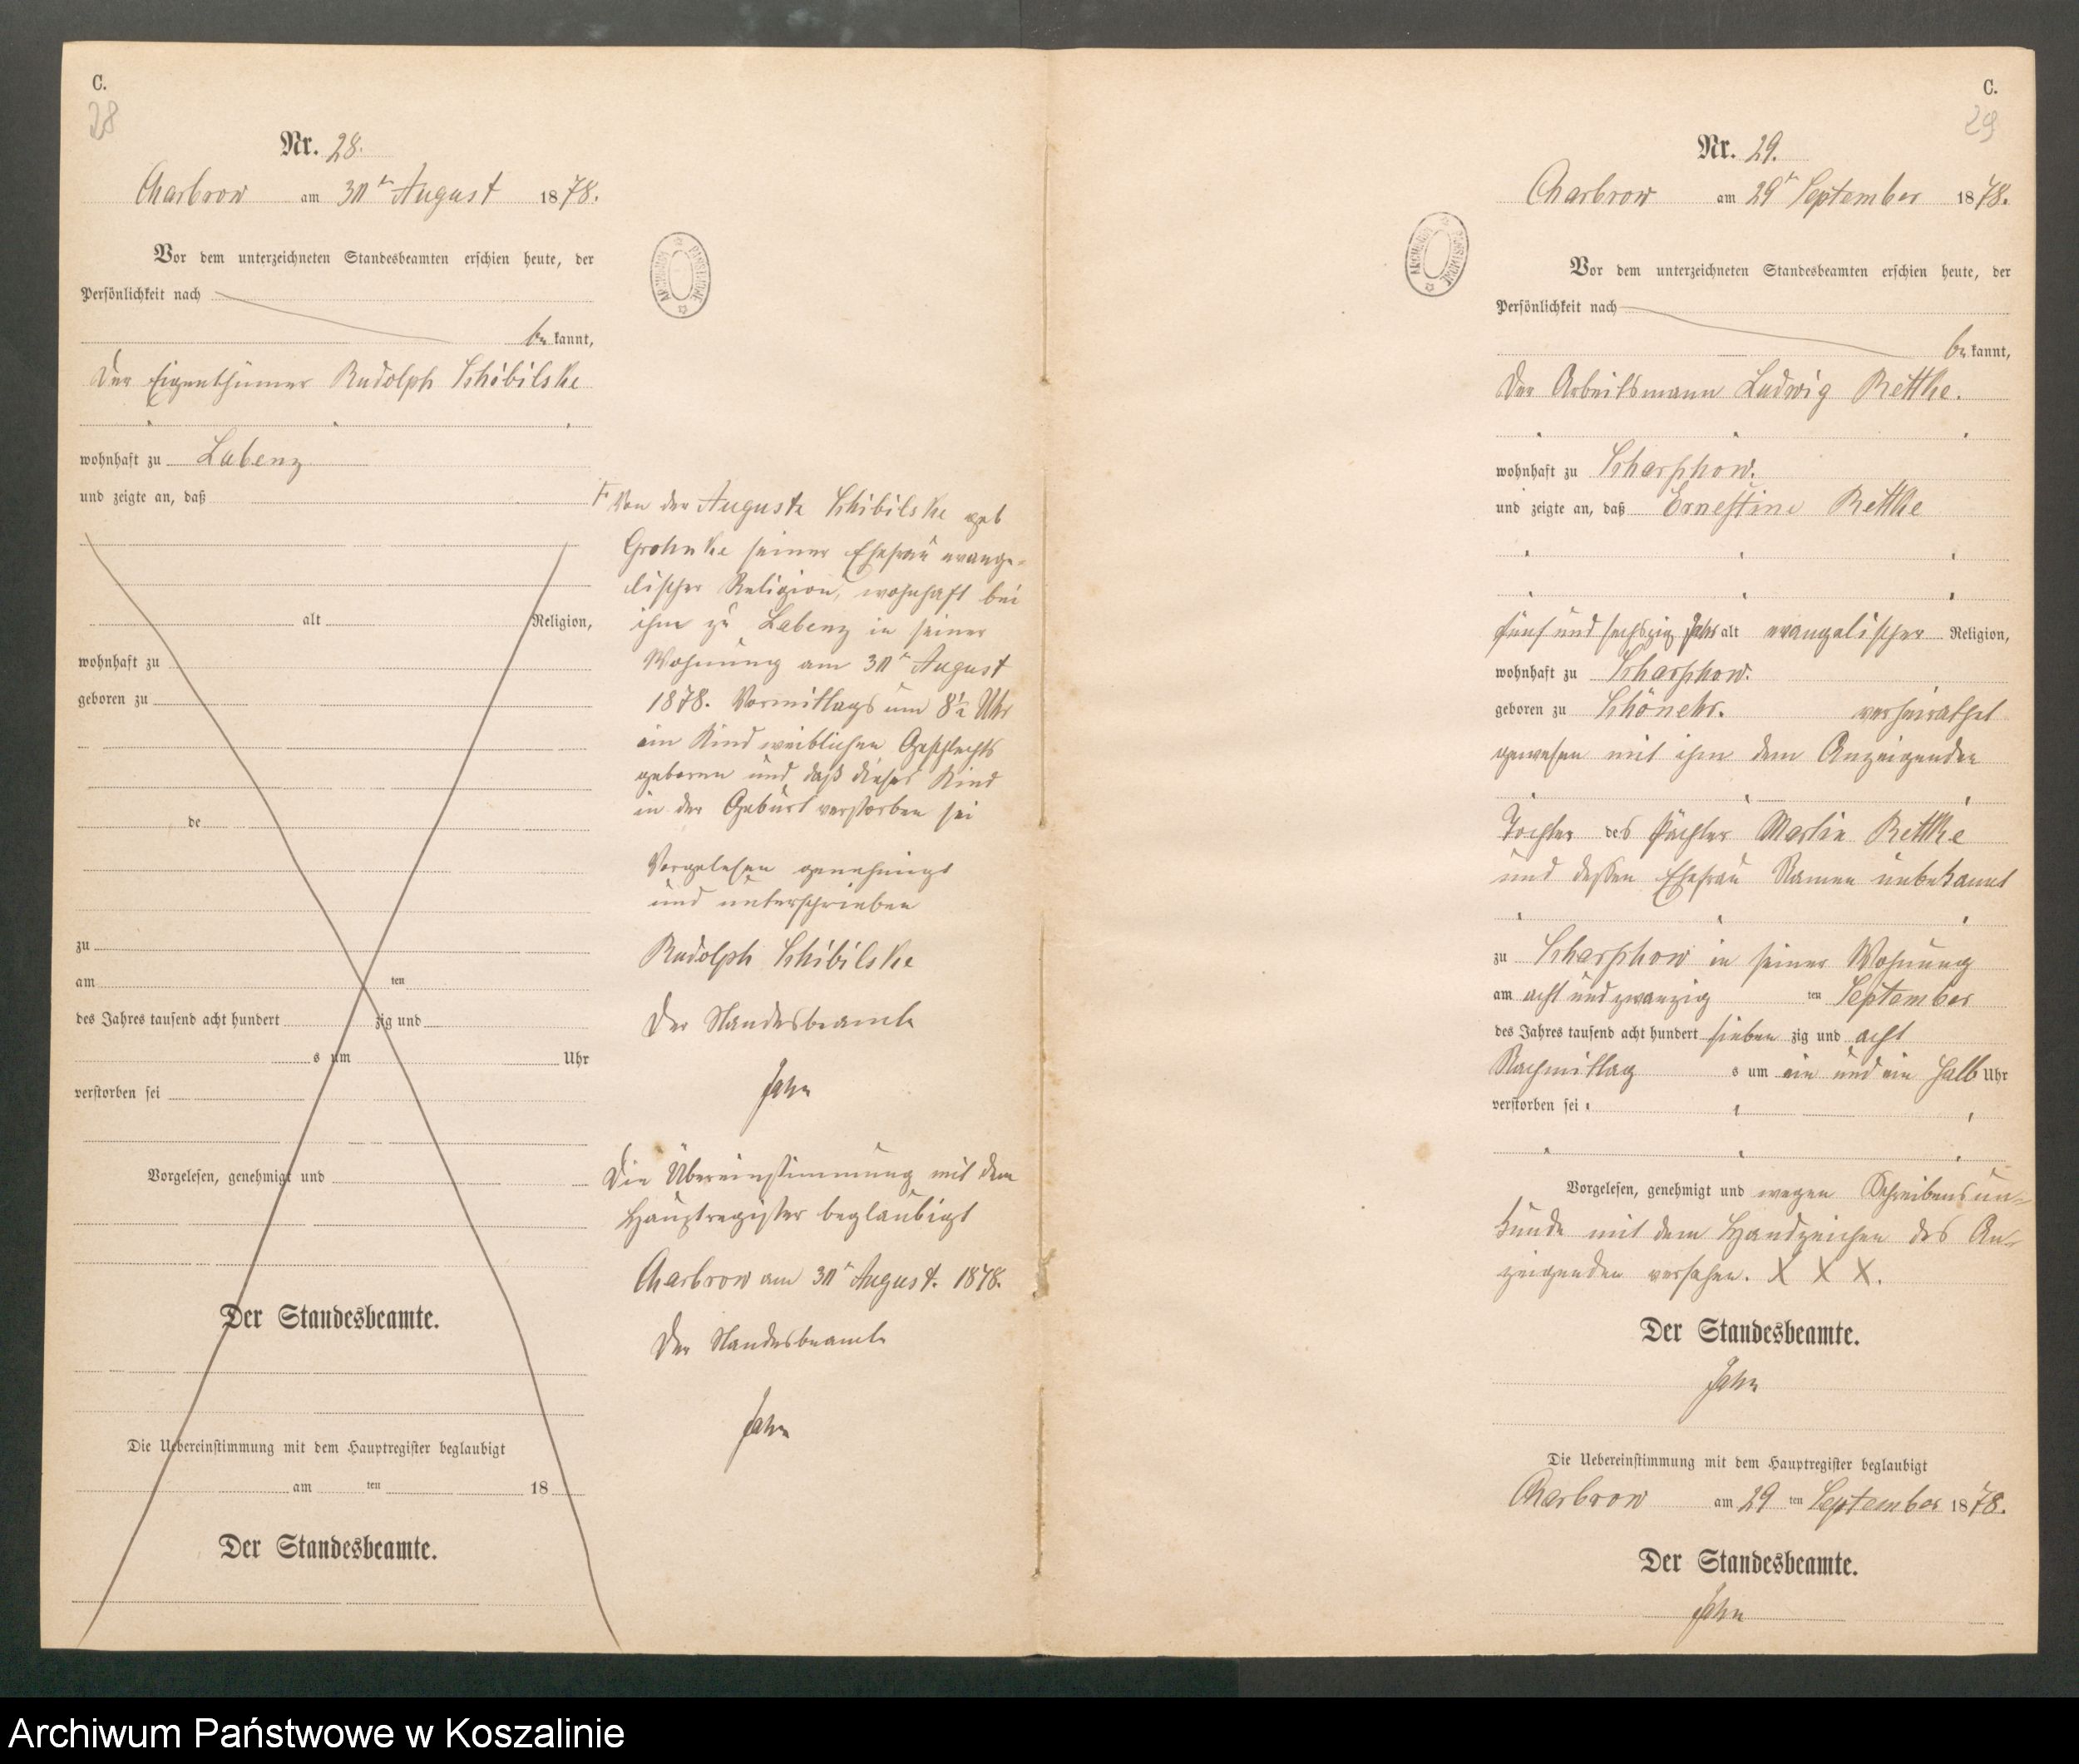 C.
28
Nr. 28.
Charbrow am 30ten August 1878.
Vor dem unterzeichneten Standesbeamten erschien heute, der
Persönlichkeit nach
be kannt,
Der Eigenthümer Rudolph Schibilske
wohnhaft zu Labenz
und zeigte an, daß
alt Religion,
wohnhaft zu
geboren zu
de
zu
am ten
des Jahres tausend acht hundert zig und
s um Uhr
verstorben sei
Vorgelesen, genehmigt und
Der Standesbeamte.
Die Uebereinstimmung mit dem Hauptregister beglaubigt
am ten 18
Der Standesbeamte.
Von der Auguste Schibilske geb
Grohnke seiner Ehefrau evange-
lischer Religion, wohnhaft bei
ihm zu Labenz in seiner
Wohnung am 30ten August
1878. Vormittags um 8½ Uhr
ein Kind weiblichen Geschlechts
geboren und daß dieses Kind
in der Geburt verstorben sei
Vorgelesen genehmigt
und unterschrieben
Rudolph Schibilske
Der Standesbeamte
Jahn
Die Übereinstimmung mit dem
Hauptregister beglaubigt
Charbrow am 30ten August. 1878.
Der Standesbeamte
Jahn
C.
29
Nr. 29.
Charbrow am 29ten September 1878.
Vor dem unterzeichneten Standesbeamten erschien heute, der
Persönlichkeit nach
be kannt,
Der Arbeitsmann Ludwig Rettke.
wohnhaft zu Scharschow.
und zeigte an, daß Ernestine Rettke
fünf und sechszig Jahr alt evangelischer Religion,
wohnhaft zu Scharschow.
geboren zu Schönehr. verheirathet
gewesen mit ihm dem Anzeigenden
Tochter des Pächter Martin Rettke
und dessen Ehefrau Namen unbekannt
zu Scharschow in seiner Wohnung
am acht und zwanzig ten September
des Jahres tausend acht hundert sieben zig und acht
Nachmittag s um ein und ein halb Uhr
verstorben sei
Vorgelesen, genehmigt und wegen Schreibensun-
kunde mit dem Handzeichen des An-
zeigenden versehen. X X X.
Der Standesbeamte.
Jahn
Die Uebereinstimmung mit dem Hauptregister beglaubigt
Charbrow am 29 ten September 1878.
Der Standesbeamte.
Jahn
Archiwum Państwowe w Koszalinie